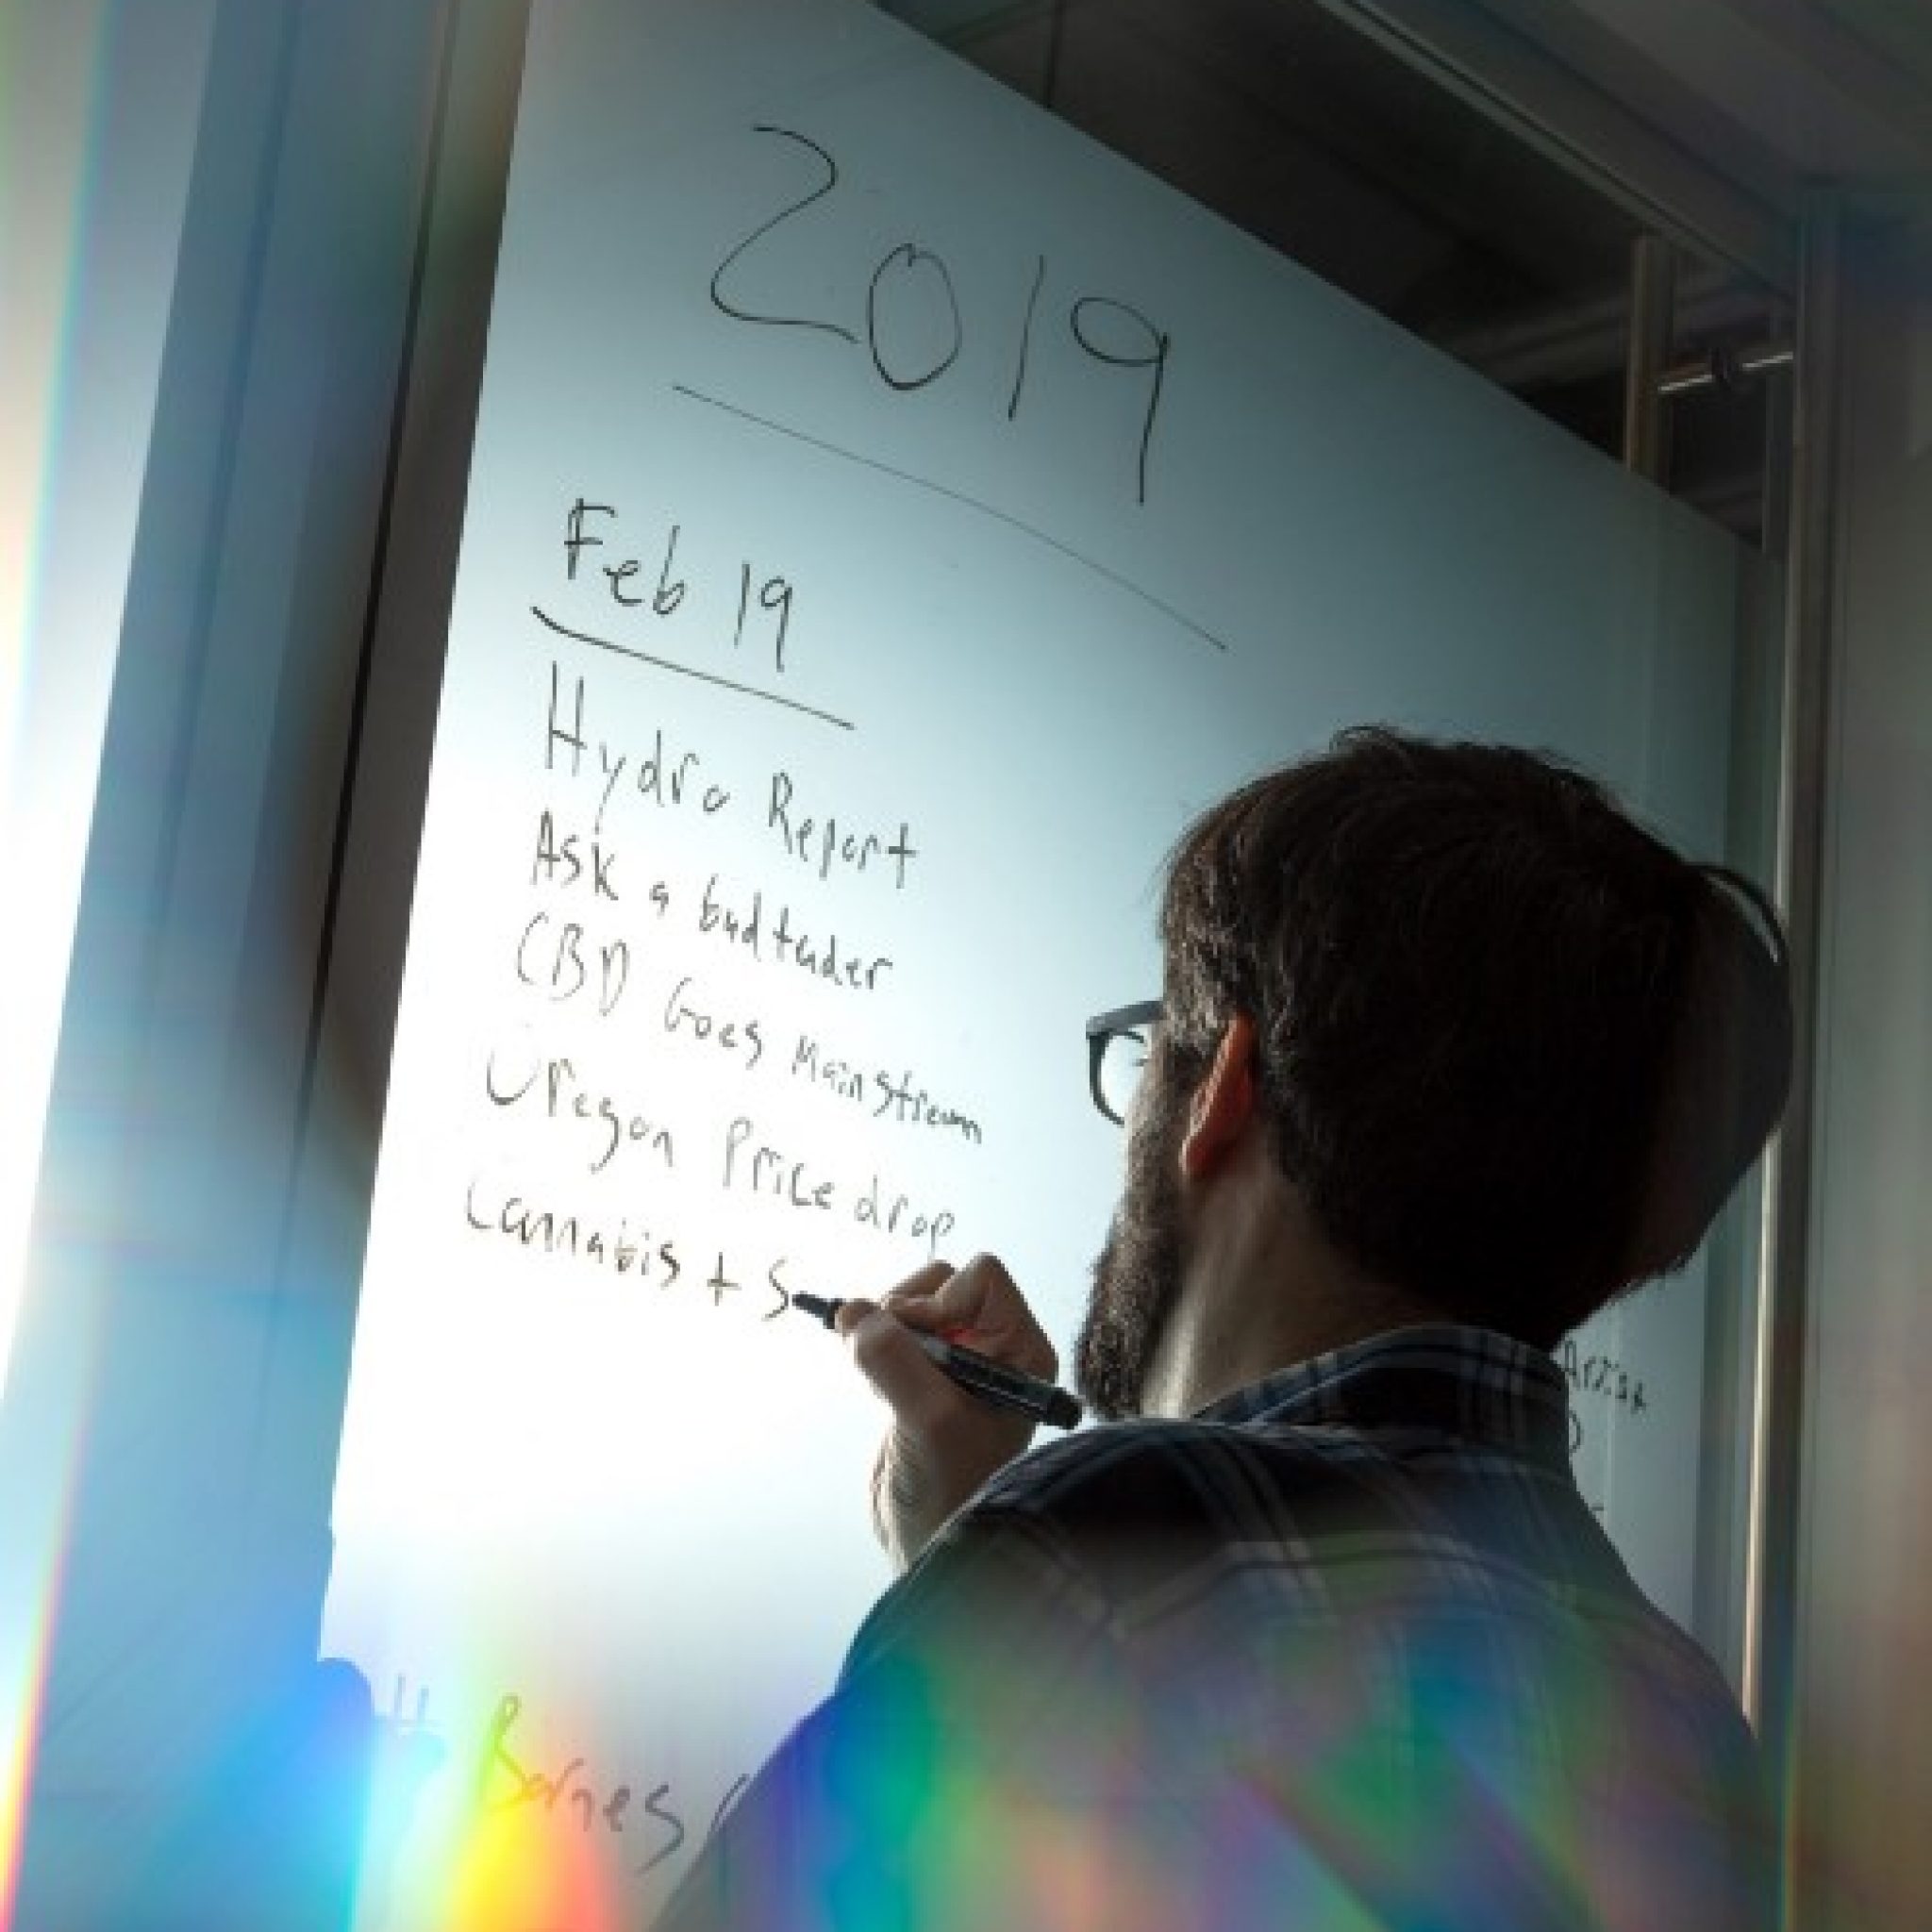 2019
Feb 19
Hydro Report
Ask a budtender
CBD Goes Mainstream
Oregon Price drop
Cannabis + S
Barnes